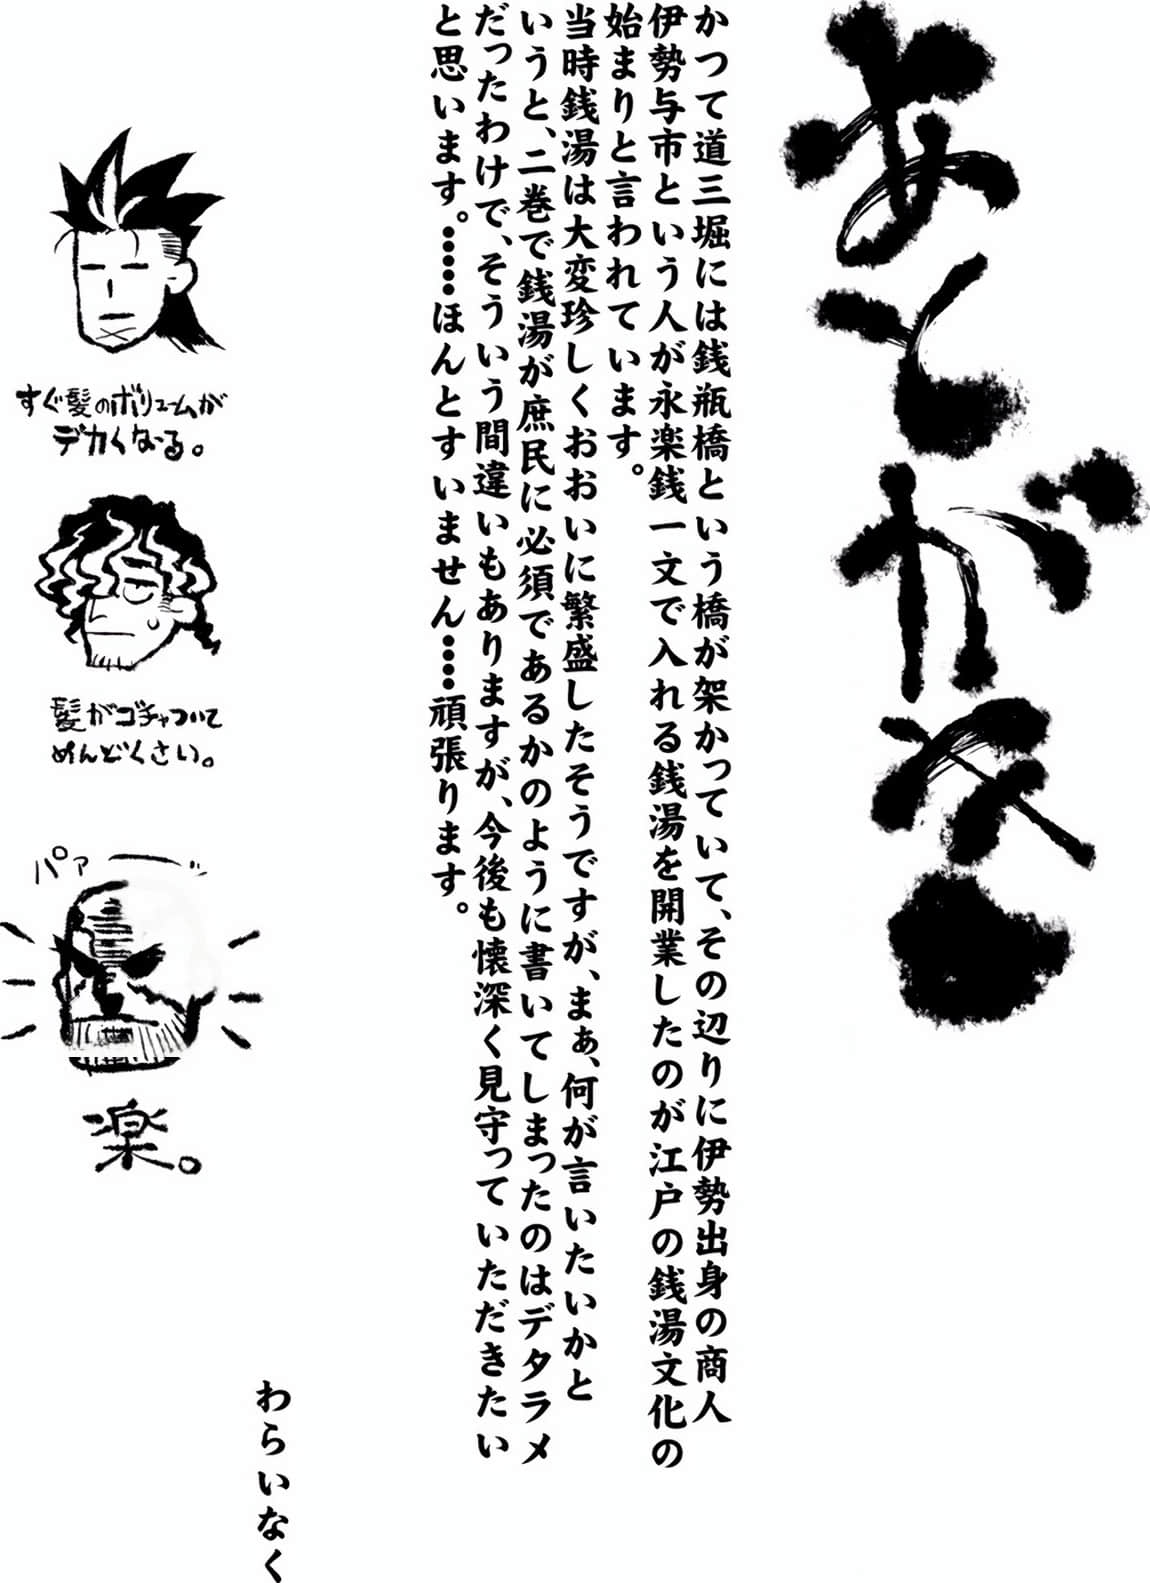 あとがき
かつて道三堀には銭瓶橋という橋が架かっていて、その辺りに伊勢出身の商人
伊勢与市という人が永楽銭一文で入れる銭湯を開業したのが江戸の銭湯文化の
始まりと言われています。
当時銭湯は大変珍しくおおいに繁盛したそうですが、まぁ、何が言いたいかと
いうと、二巻で銭湯が庶民に必須であるかのように書いてしまったのはデタラメ
だったわけで、そういう間違いもありますが、今後も懐深く見守っていただきたい
と思います。……ほんとすいません……頑張ります。
わらいなく
すぐ髪のボリュームが
デカくなる。
髪がゴチャついて
めんどくさい。
パァーッ
楽。